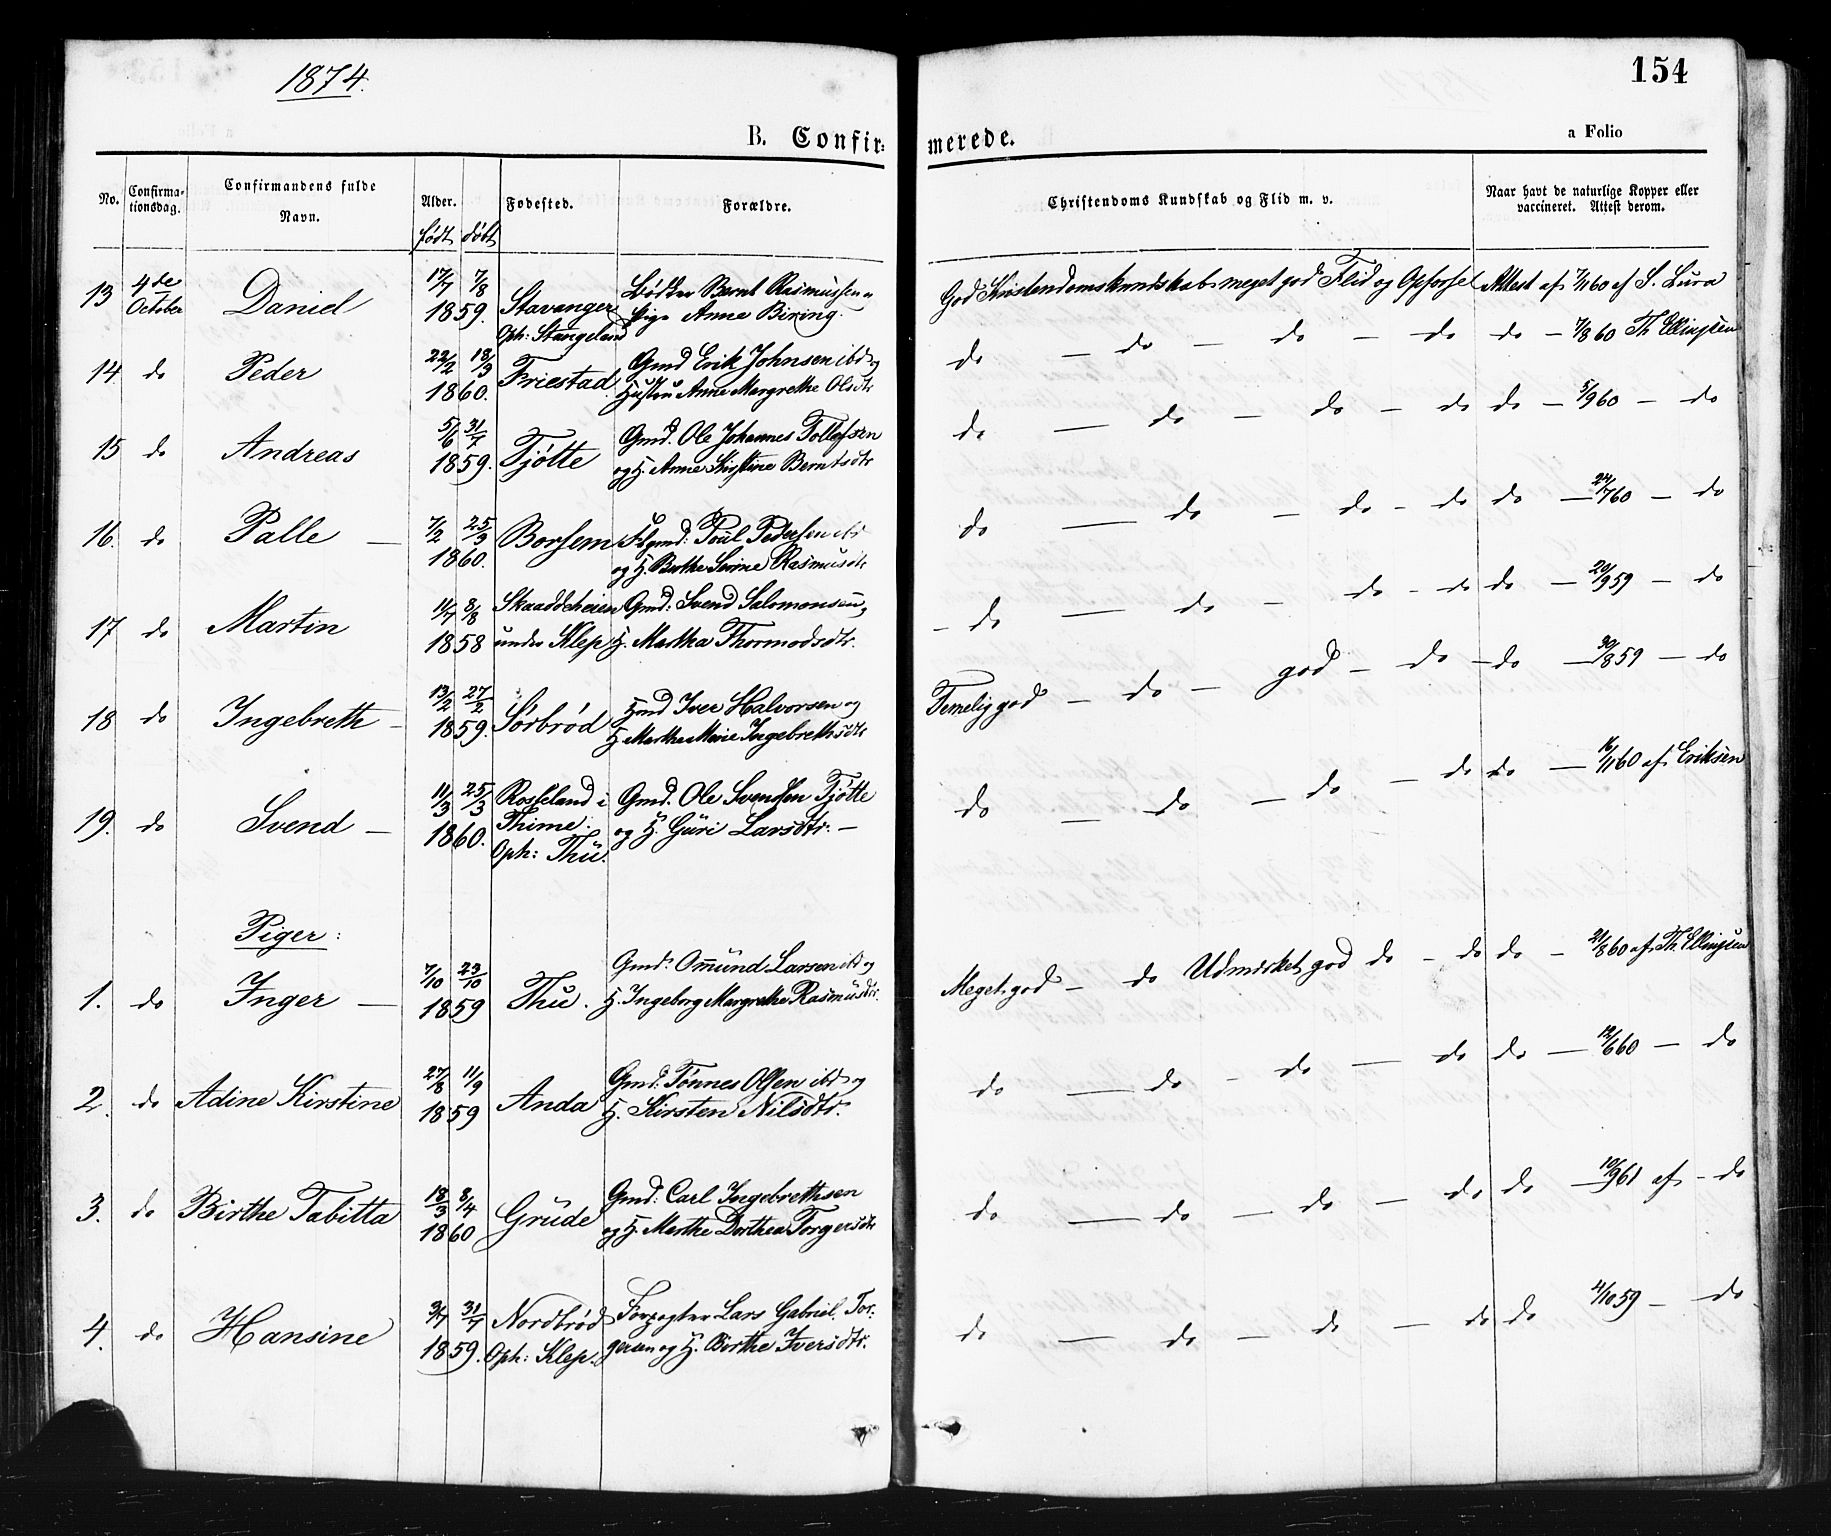 1874.
154
B. Confirmerede.
a Folio
No.
Confirmationsdag.
Confirmandens fulde Navn.
Alder.
født døbt
Fødested.
Forældre.
Christendoms Kundskab og Flid m. v.
Naar havt de naturlige Kopper eller vaccineret. Attest derom.
13 4de October Daniel 17/7 7/8 1859. Stavanger Oph: Stangeland Bødker Bernt Rasmussen og Pige Anne Biring. God Kristendomskundskab meget god Flid og Opførsel Attest af 7/11 60 af S. Lura
14 do Peder 22/2 18/3 1860. Friestad Gmd Erik Johnsen ibd og Hustru Anne Margrethe Olsdtr do — do — do — do do — 7/8 60 Th Ellingsen
15 do Andreas 5/6 31/7 1859. Tjøtte Gmd. Ole Johannes Tollefsen og H. Anne Kirstine Berntsdtr do — do — do — do do — 5/9 60 — do
16. do Palle — 7/2 25/3 1860. Borsem Poul Pedersen og H. Berthe Serine Rasmusdtr do — do — do — do do — 24/7 60 — do
17 do Martin 11/7 8/8 1858 Skaaddeheien under Klep Gmd: Svend Salomonsen, H. Martha Thormodsdtr. do — do — do — do do — 20/9 59 — do
18 do Ingebreth — 13/2 27/2 1859. Sørbrød Hmd Iver Halvorsen og H. Marthe Marie Ingebrethsdtr Temelig god — do — god — do — do — 30/8 59 — do
19. do Svend — 11/3 25/3 1860. Rosseland i Thime. Oph: Thu. Gmd. Ole Svendsen Tjøtte og H. Guri Larsdtr. — do — do — do — do do — 16/11 60 af Eriksen
Piger:
1. do Inger — 7/10 23/10 1859 Thu. Gmd: Omund Larsen ibd og H. Ingeborg Margrethe Rasmusdtr. Meget god — do Udmærket god do — do do — 21/8 60 af Th Ellingsen
2. do Adine Kirstine 27/8 11/9 1859 Anda Gmd: Tønnes Olsen ibd og H. Kirsten Nilsdtr. do — do — do — do do — 12/6 60 — do
3. do Birthe Tabitta 18/3 8/4 1860 Grude Gmd: Carl Ingebrethsen og H. Marthe Dorthea Torgersdtr do — do — do — do do — 10/9 61 af — do
4. do Hansine 3/7 31/7 1859. Nordbrød Oph: Klep. Forpagter Lars Gabriel Torgersen og H. Birthe Iversdtr. do — do — do — do do 4/10 59 — do